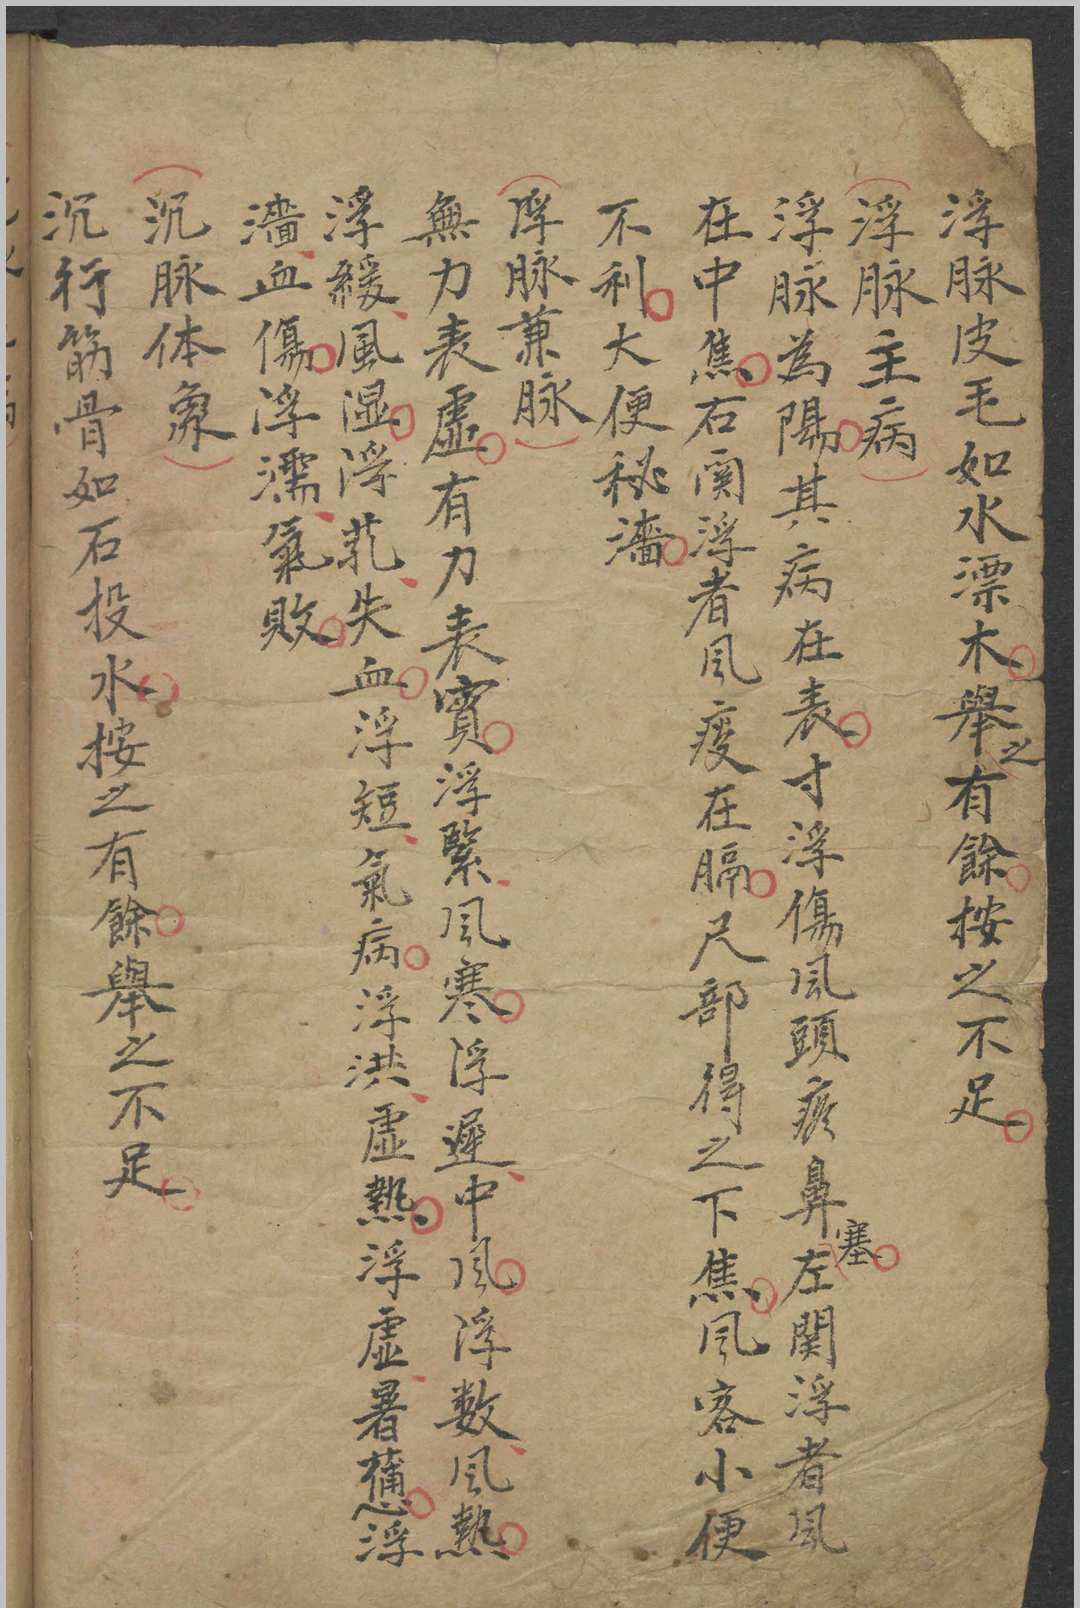 浮脉皮毛如水漂木舉之有餘按之不足
浮脉主病
浮脉為陽其病在表寸浮傷風頭疼鼻塞左関浮者風
在中焦右関浮者風痰在膈尺部得之下焦風客小便
不利大便秘濇
浮脉兼脉
無力表虛有力表實浮緊風寒浮遲中風浮数風熱
浮緩風湿浮芤失血浮短氣病浮洪虛熱浮虛暑憊浮
濇血傷浮濡氣敗
沉脉体象
沉行筋骨如石投水按之有餘舉之不足